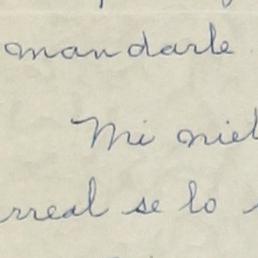 mandarle
Mi niet
rreal se lo